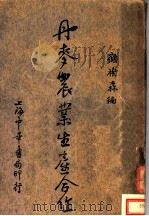 顧樹森編
丹麥農業生產合作
上海中華書局印行